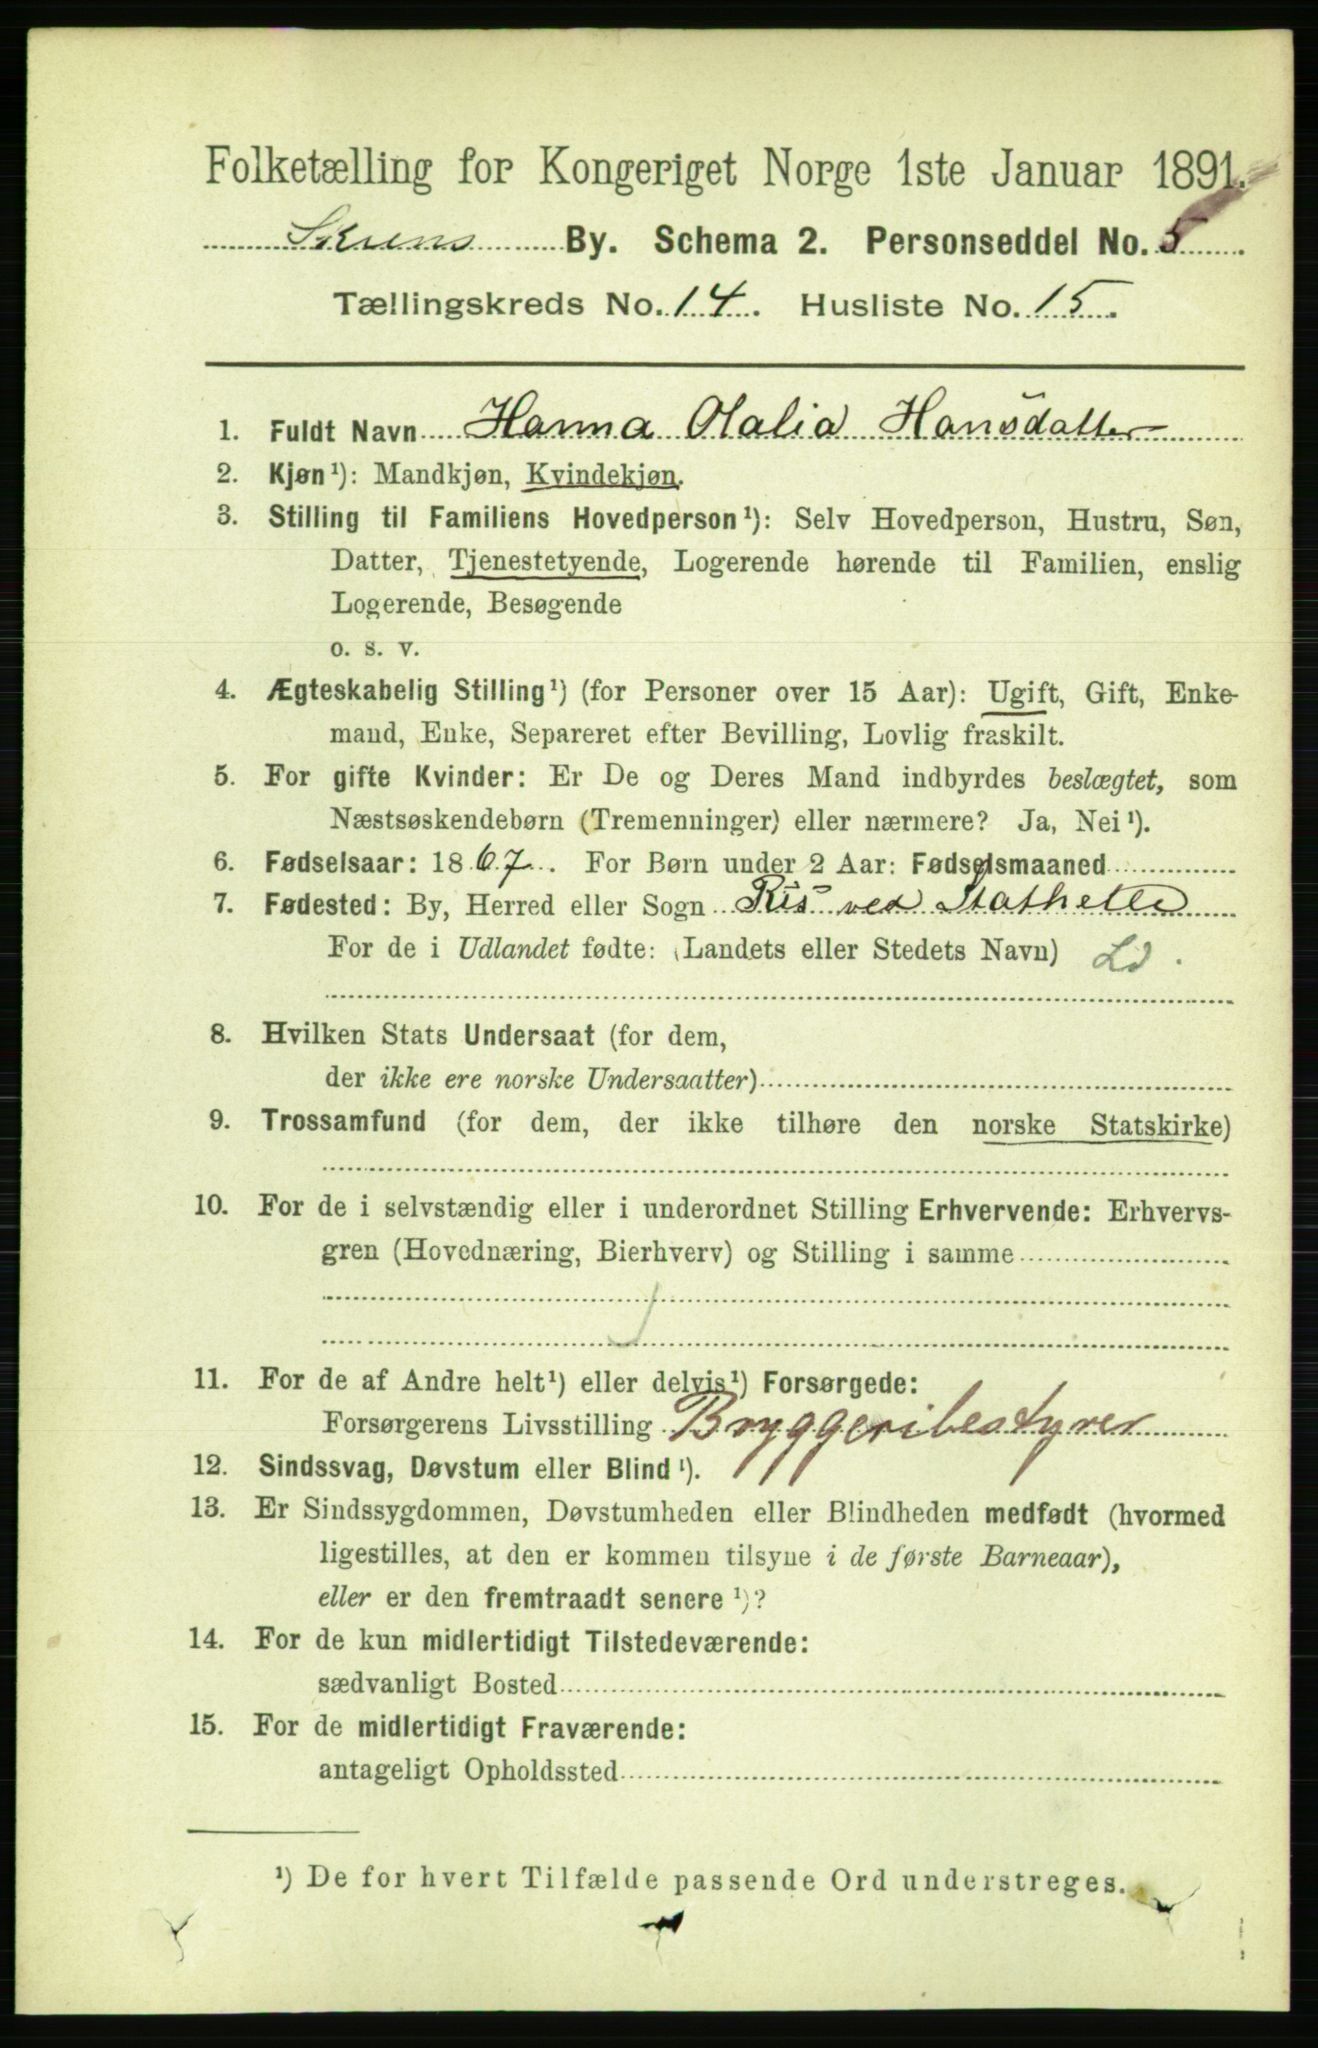 Folketælling for Kongeriget Norge 1ste Januar 1891.
Skiens By. Schema 2. Personseddel No. 5.
Tællingskreds No. 14. Husliste No. 15.
1. Fuldt Navn Hanna Olalia Hansdatter
2. Kjøn¹): Mandkjøn, Kvindekjøn.
3. Stilling til Familiens Hovedperson¹): Selv Hovedperson, Hustru, Søn,
Datter, Tjenestetyende, Logerende hørende til Familien, enslig
Logerende, Besøgende
o. s. v.
4. Ægteskabelig Stilling¹) (for Personer over 15 Aar): Ugift, Gift, Enke-
mand, Enke, Separeret efter Bevilling, Lovlig fraskilt.
5. For gifte Kvinder: Er De og Deres Mand indbyrdes beslægtet, som
Næstsøskendebørn (Tremenninger) eller nærmere? Ja, Nei¹).
6. Fødselsaar: 1867. For Børn under 2 Aar: Fødselsmaaned
7. Fødested: By, Herred eller Sogn Riis ved Stathelle
For de i Udlandet fødte: (Landets eller Stedets Navn) Ld.
8. Hvilken Stats Undersaat (for dem,
der ikke ere norske Undersaatter)
9. Trossamfund (for dem, der ikke tilhøre den norske Statskirke)
10. For de i selvstændig eller i underordnet Stilling Erhvervende: Erhvervs-
gren (Hovednæring, Bierhverv) og Stilling i samme
11. For de af Andre helt¹) eller delvis¹) Forsørgede:
Forsørgerens Livsstilling Bryggeribestyrer
12. Sindssvag, Døvstum eller Blind¹).
13. Er Sindssygdommen, Døvstumheden eller Blindheden medfødt (hvormed
ligestilles, at den er kommen tilsyne i de første Barneaar),
eller er den fremtraadt senere¹)?
14. For de kun midlertidigt Tilstedeværende:
sædvanligt Bosted
15. For de midlertidigt Fraværende:
antageligt Opholdssted
¹) De for hvert Tilfælde passende Ord understreges.